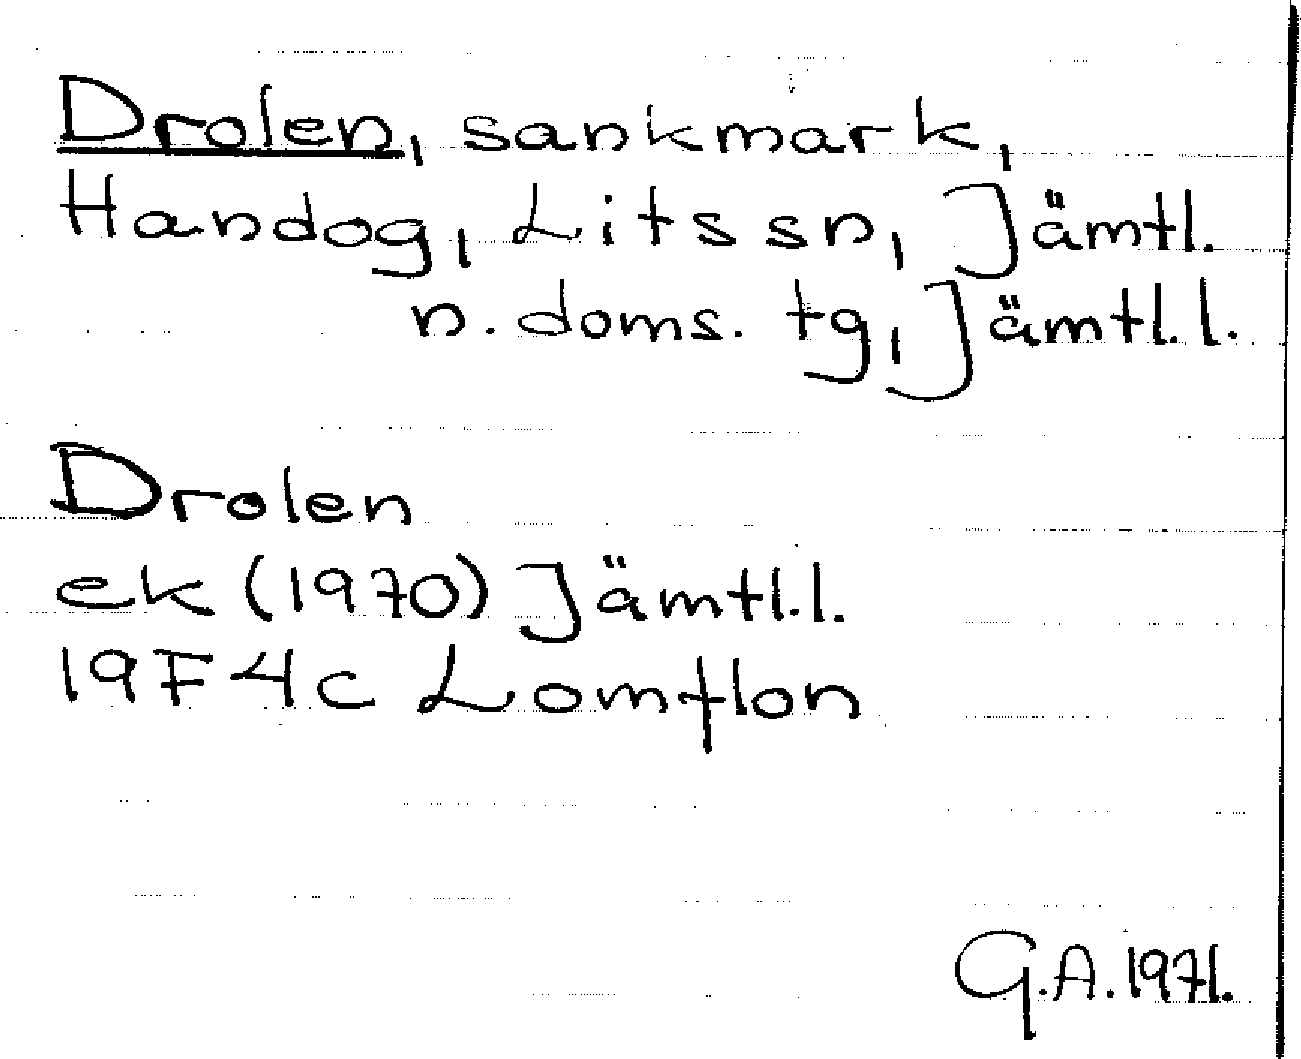 Drolen, sankmark,
Handog, Lits sn, Jämtl.
n. doms. tg, Jämtl. l.
Drolen
ek (1970) Jämtl. l.
19F 4c Lomflon
G.A. 1971.